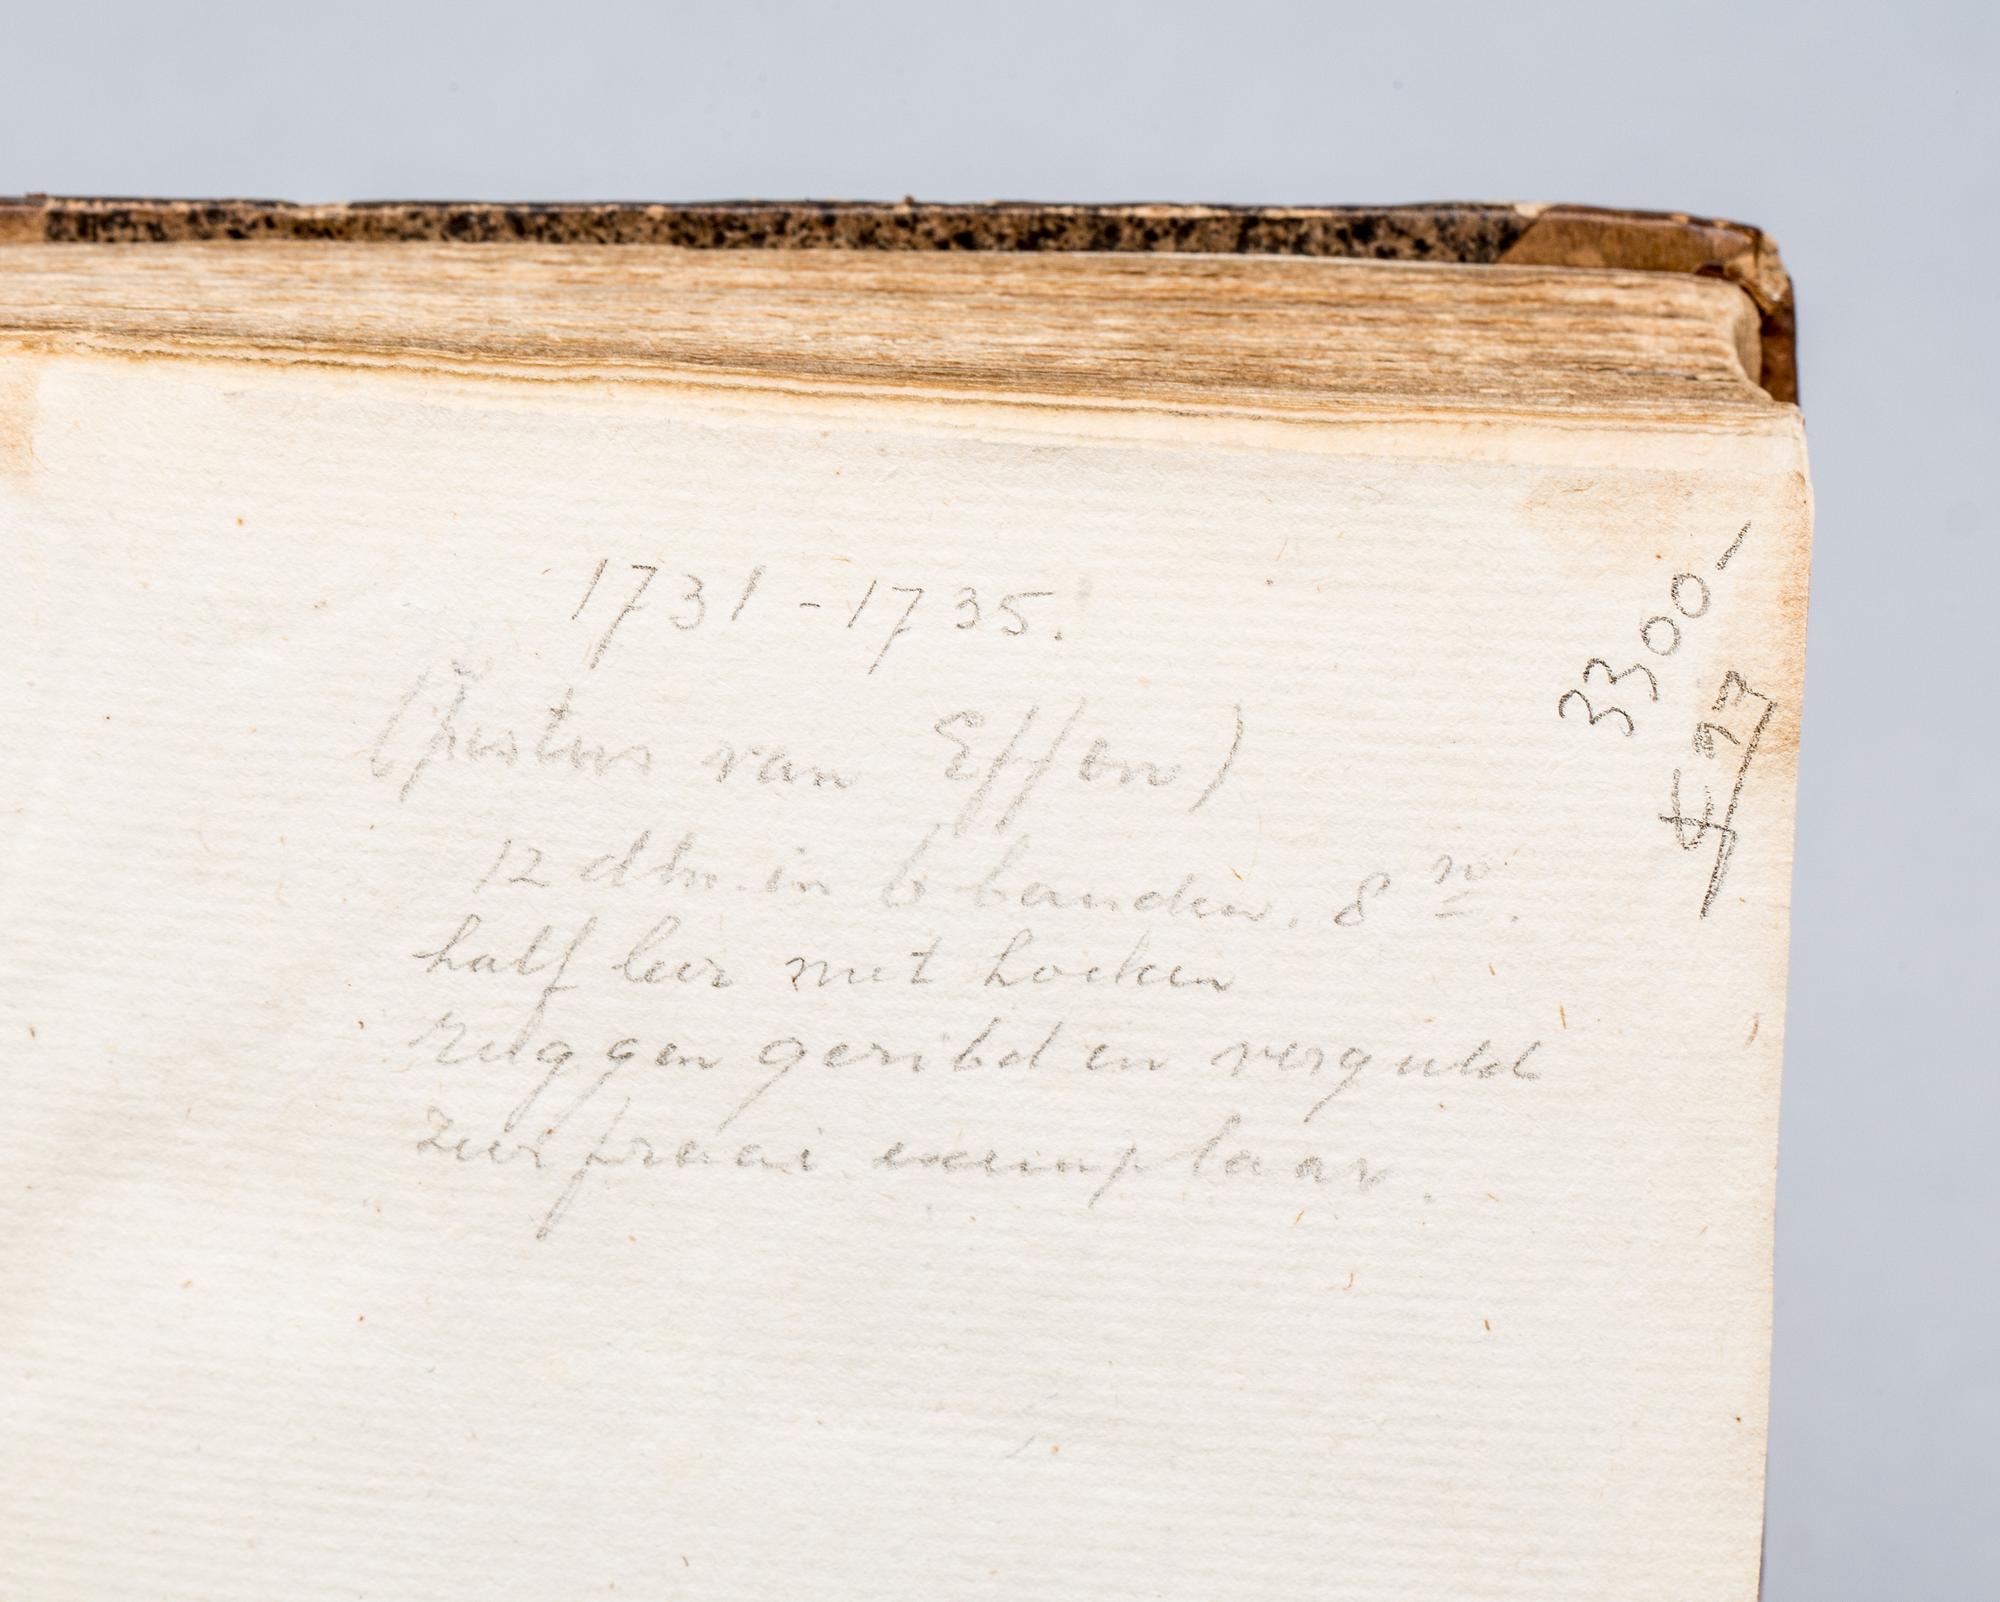 1731 - 1735.
(Justus van Effen)
12 dln. in 6 banden. 8º.
half leer met hoeken
ruggen geribd en verguld
zeer fraai exemplaar.
3300-